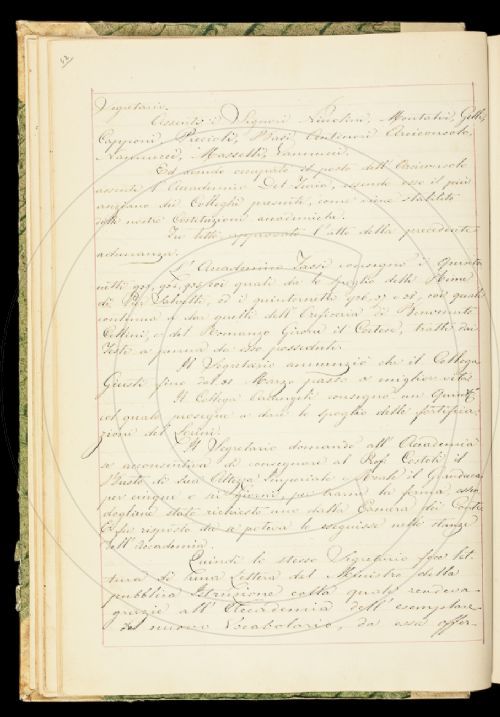 Segretario.
Assenti i Signori Niccolini, Montalvi, Gelli,
Capponi, Puccioli, Masi, Antinori Arciconsolo,
Nannucci, Masselli, Vannucci.
Ed avendo occupato il posto dell' Arciconsolo
assente l'Accademico Del Furia, essendo esso il più
anziano dei Colleghi presenti, come viene stabilito
dalle nostre Costituzioni accademiche.
Fu letto approvato l'atto della precedente
adunanza.
L'Accademico Tassi consegnò i Quinter
netti coi quali dà lo spoglio delle Rime
di ed il quinternetto col quale
continua a dar quelli dell'Oreficeria di Benvenuto
Cellini, e del Romanzo Girone il Cortese, tratti dai
Testi a penna da Esso posseduti.
Il Segretario annunziò che il Collega
Giusti fino dal 31 Marzo passò a miglior vita.
Il Collega consegnò un Quint.
col quale prosegue a dare lo spoglio delle fortifica-
zioni del Lorini.
Il Segretario domandò all' Accademia
se acconsentiva di consegnare al Prof. Costoli il
Busto di Sua Altezza Imperiale e Reale il Granduca
per cinque o sei giorni, per trarne la forma, essen
dogliene stato richiesto uno dalla Camera dei Conti.
E fu risposto da
dell'Accademia.
Quindi lo stesso Segretario fece let-
tura di una Lettera del Ministro della
pubblica Istruzione colla quale rendeva
grazie all' Accademia dell' esemplare
del nuovo Vocabolario, da essa offer-